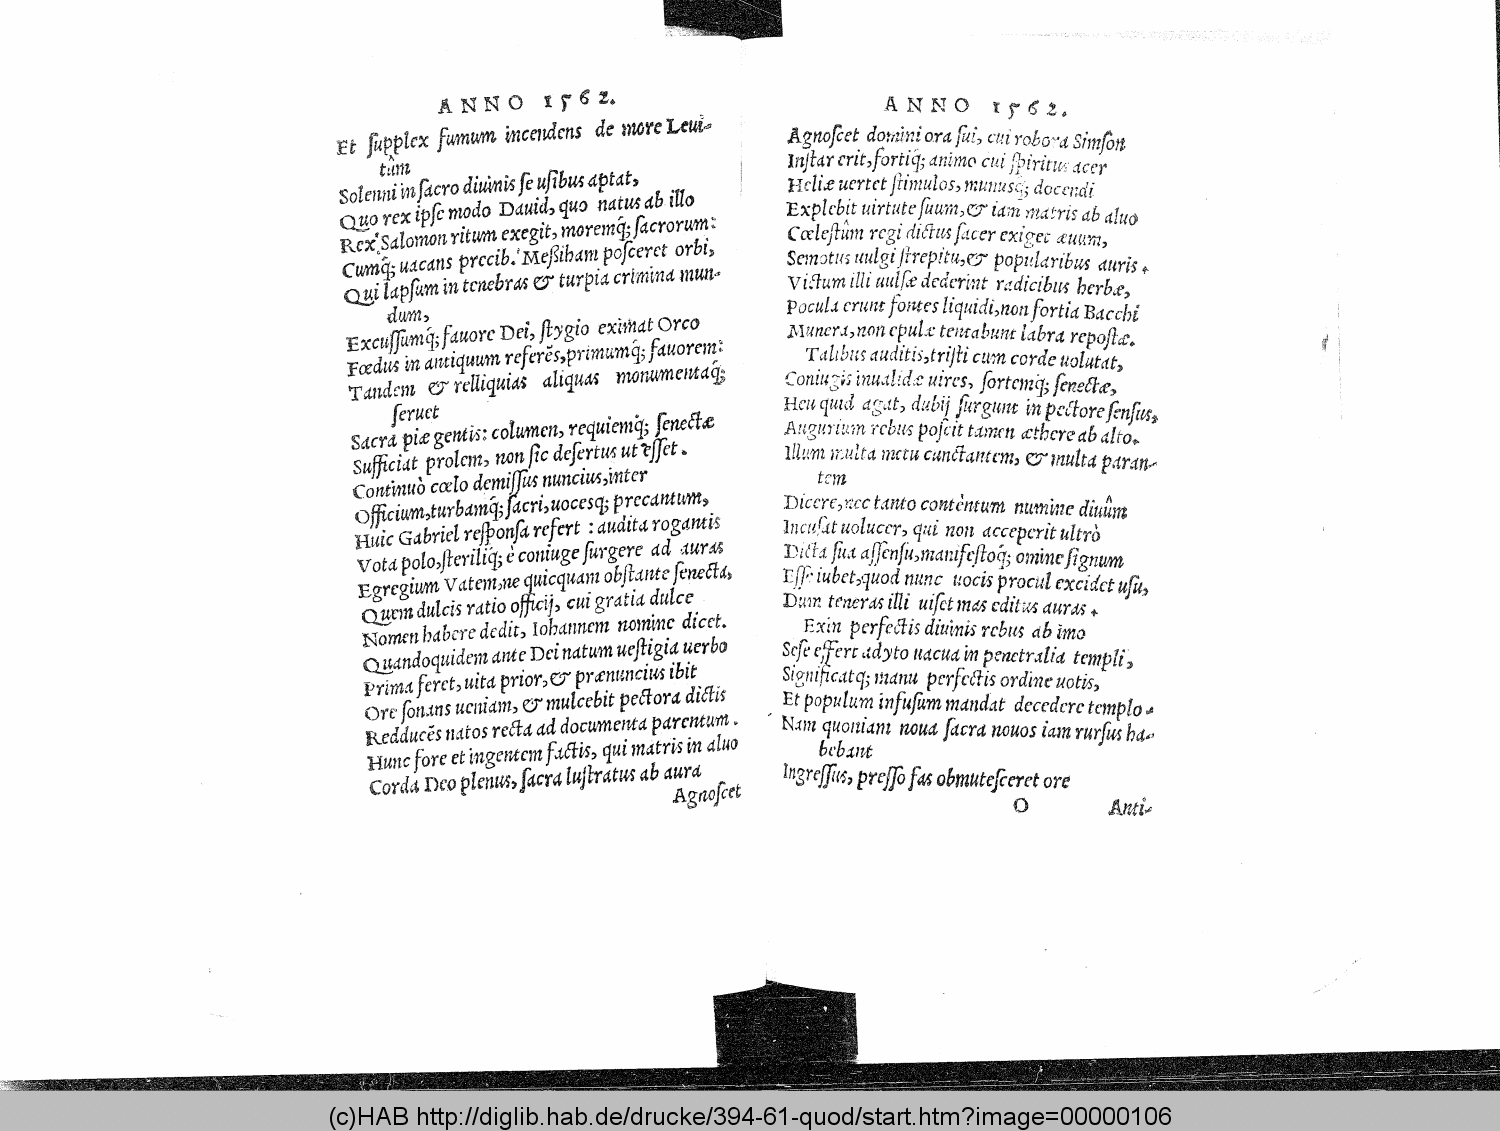 ANNO 1562.
Et ſupplex fumum incendens de more Leui-
tûm
Solenni in ſacro diuinis ſe uſibus aptat,
Quo rex ipſe modo Dauid, quo natus ab illo
Rex Salomon ritum exegit, moremq́; ſacrorum:
Cumq́; uacans precib. Meßiham poſceret orbi,
Qui lapſum in tenebras & turpia crimina mun-
dum,
Excuſſumq́; fauore Dei, ſtygio eximat Orco
Fœdus in antiquum referẽs, primumq́; fauorem:
Tandem & relliquias aliquas monumentaq́;
ſeruet
Sacra piæ gentis: columen, requiemq́; ſenectæ
Sufficiat prolem, non ſic deſertus ut eſſet.
Continuò cœlo demiſſus nuncius, inter
Officium, turbamq́; ſacri, uocesq; precantum,
Huic Gabriel reſponſa refert : audita rogantis
Vota polo, ſteriliq́; è coniuge ſurgere ad auras
Egregium Vatem, ne quicquam obſtante ſenecta,
Quem dulcis ratio officij, cui gratia dulce
Nomen habere dedit, Iohannem nomine dicet.
Quandoquidem ante Dei natum ueſtigia uerbo
Prima feret, uita prior, & prænuncius ibit
Ore ſonans ueniam, & mulcebit pectora dictis
Redducẽs natos recta ad documenta parentum.
Hunc fore et ingentem factis, qui matris in aluo
Corda Deo plenus, ſacra luſtratus ab aura
Agnoſcet
ANNO 1562.
Agnoſcet domini ora ſui, cui robora Simſon
Inſtar erit, fortiq́; animo cui ſpiritus acer
Heliæ uertet ſtimulos, munusq́; docendi
Explebit uirtute ſuum, & iam matris ab aluo
Cœleſtûm regi dictus ſacer exiget æuum,
Semotus uulgi ſtrepitu, & popularibus auris.
Victum illi uulſæ dederint radicibus herbæ,
Pocula erunt fontes liquidi, non fortia Bacchi
Munera, non epulæ tentabunt labra repoſtæ.
Talibus auditis, triſti cum corde uolutat,
Coniugis inualidæ uires, ſortemq́; ſenectæ,
Heu quid agat, dubij ſurgunt in pectore ſenſus,
Augurium rebus poſcit tamen æthere ab alto.
Illum multa metu cunctantem, & multa paran-
tem
Dicere, nec tanto contentum numine diuûm
Incuſat uolucer, qui non acceperit ultrò
Dicta ſua aſſenſu, manifeſtoq́; omine ſignum
Eſſe iubet, quod nunc uocis procul excidet uſu,
Dum teneras illi uiſet mas editus auras.
Exin perfectis diuinis rebus ab imo
Seſe efferre adyto uacua in penetralia templi,
Significatq́; manu perfectis ordine uotis,
Et populum infuſum mandat decedere templo.
Nam quoniam noua ſacra nouos iam rurſus ha-
bebant
Ingreſſus, preſſo fas obmuteſceret ore
O Anti-
(c)HAB http://diglib.hab.de/drucke/394-61-quod/start.htm?image=00000106